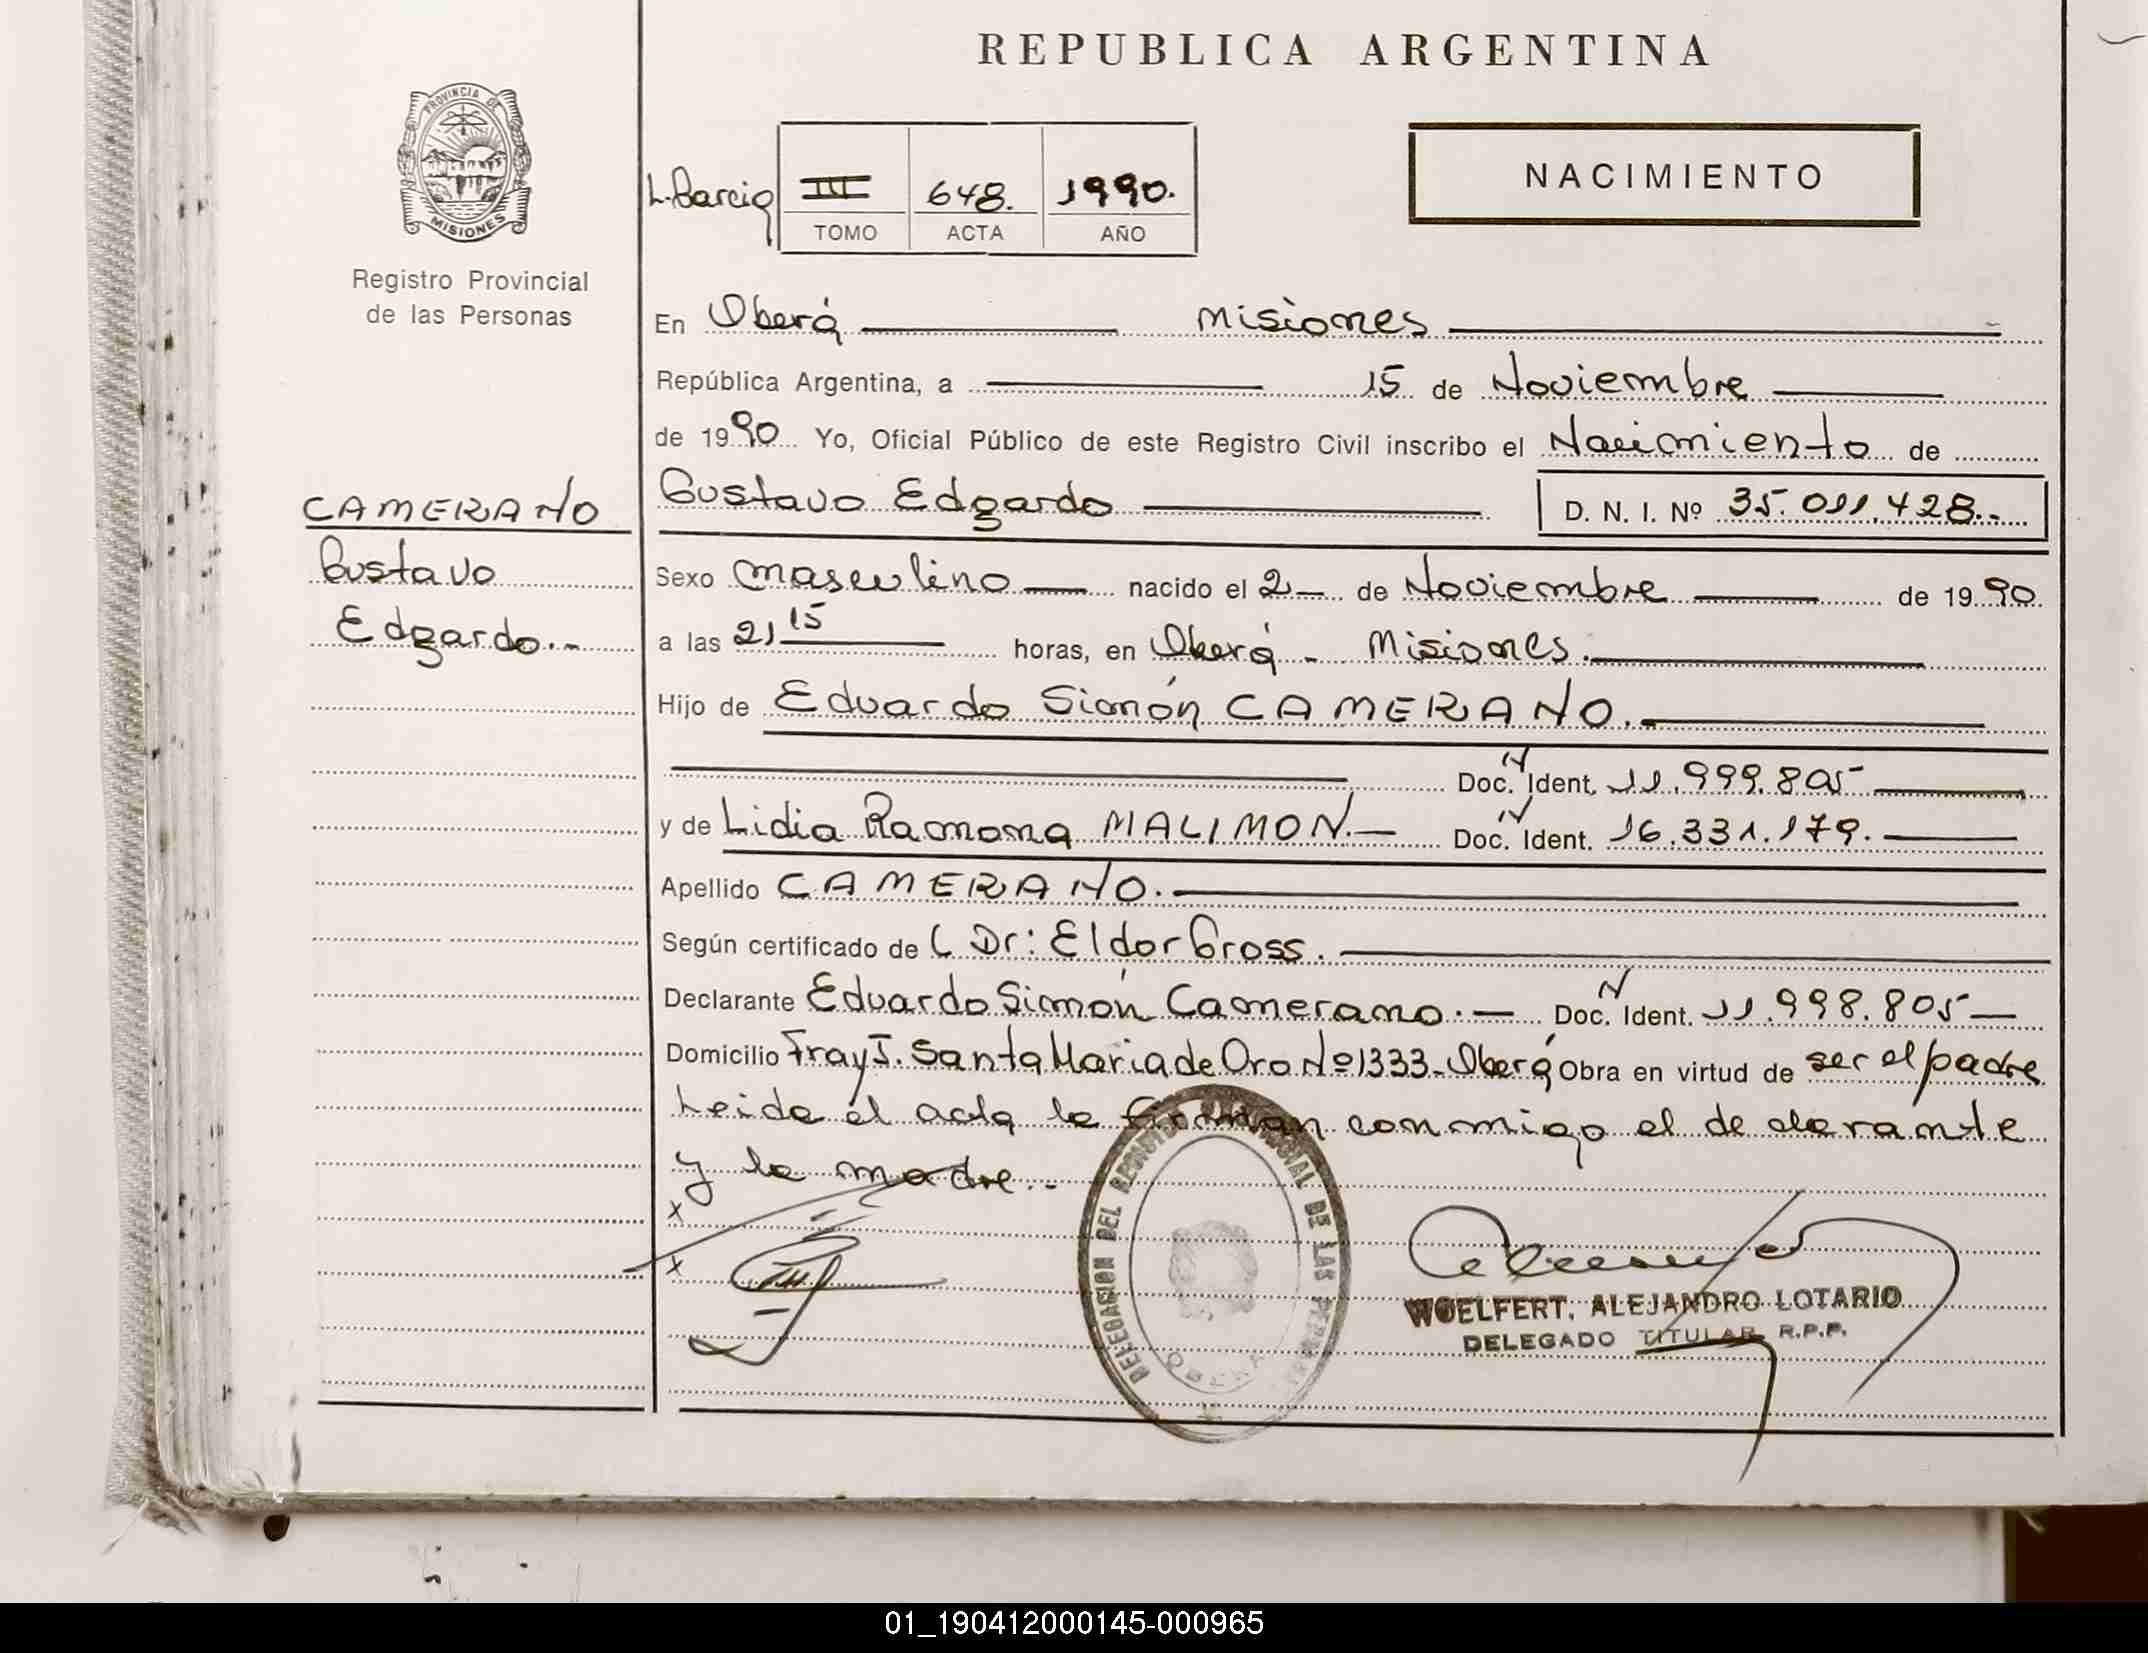 REPUBLICA ARGENTINA
PROVINCIA DE
MISIONES
Registro Provincial
de las Personas
NACIMIENTO
III 648. 1990.
TOMO ACTA AÑO
En Oberá Misiones
República Argentina, a 15 de Noviembre
de 1990 Yo, Oficial Público de este Registro Civil inscribo el Nacimiento de
CAMERANO
Gustavo
Edgardo.-
Gustavo Edgardo D. N. I. Nº 35.011.428.-
Sexo masculino nacido el 2 de Noviembre de 1990
a las 21 15 horas, en Oberá - Misiones.
Hijo de Eduardo Simón CAMERANO.
Doc. N Ident. 11.999.805
y de Lidia Ramona MALIMON. Doc. N Ident. 16.331.179.
Apellido CAMERANO.
Según certificado de Dr: Eldor Gross.
Declarante Eduardo Simón Camerano. Doc. N Ident. 11.998.805
Domicilio Fray J. Santa Maria de Oro Nº 1333 - Oberá Obra en virtud de ser el padre
Leida el acta la firman conmigo el declarante
y la madre.-
x
x
DELEGACION DEL REGISTRO PROVINCIAL DE LAS PERSONAS
OBERA
WOELFERT, ALEJANDRO LOTARIO
DELEGADO TITULAR R.P.P.
01_190412000145-000965